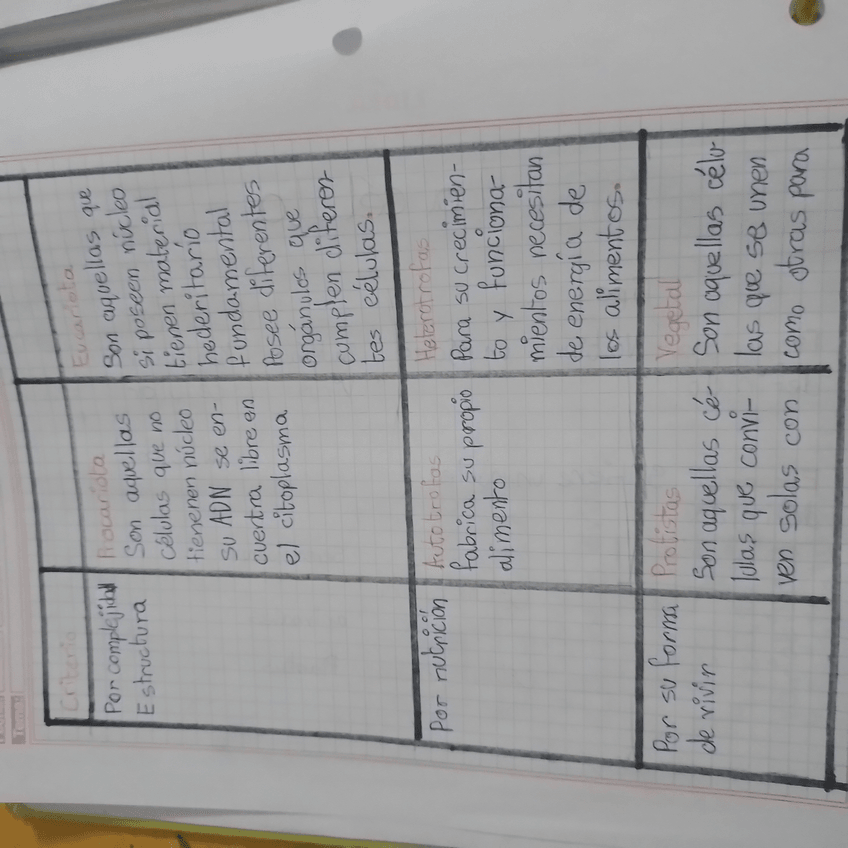 Criterio
Por complejidad
Estructura
Procariota
Son aquellas
células que no
tienenen núcleo
su ADN se en-
cuentra libre en
el citoplasma
Eucariota
Son aquellas que
si poseen núcleo
tienen material
hederitario
fundamental
Posee diferentes
orgánulos que
cumplen diferen
tes células.
Por nutrición
Autotrofas
fabrica su propio
alimento
Heterotrofas
Para su crecimien-
to y funciona-
mientos necesitan
de energía de
los alimentos.
Por su forma
de vivir
Protistas
Son aquellas cé-
lulas que convi-
ven solas con
Vegetal
Son aquellas célu-
las que se unen
como otras para